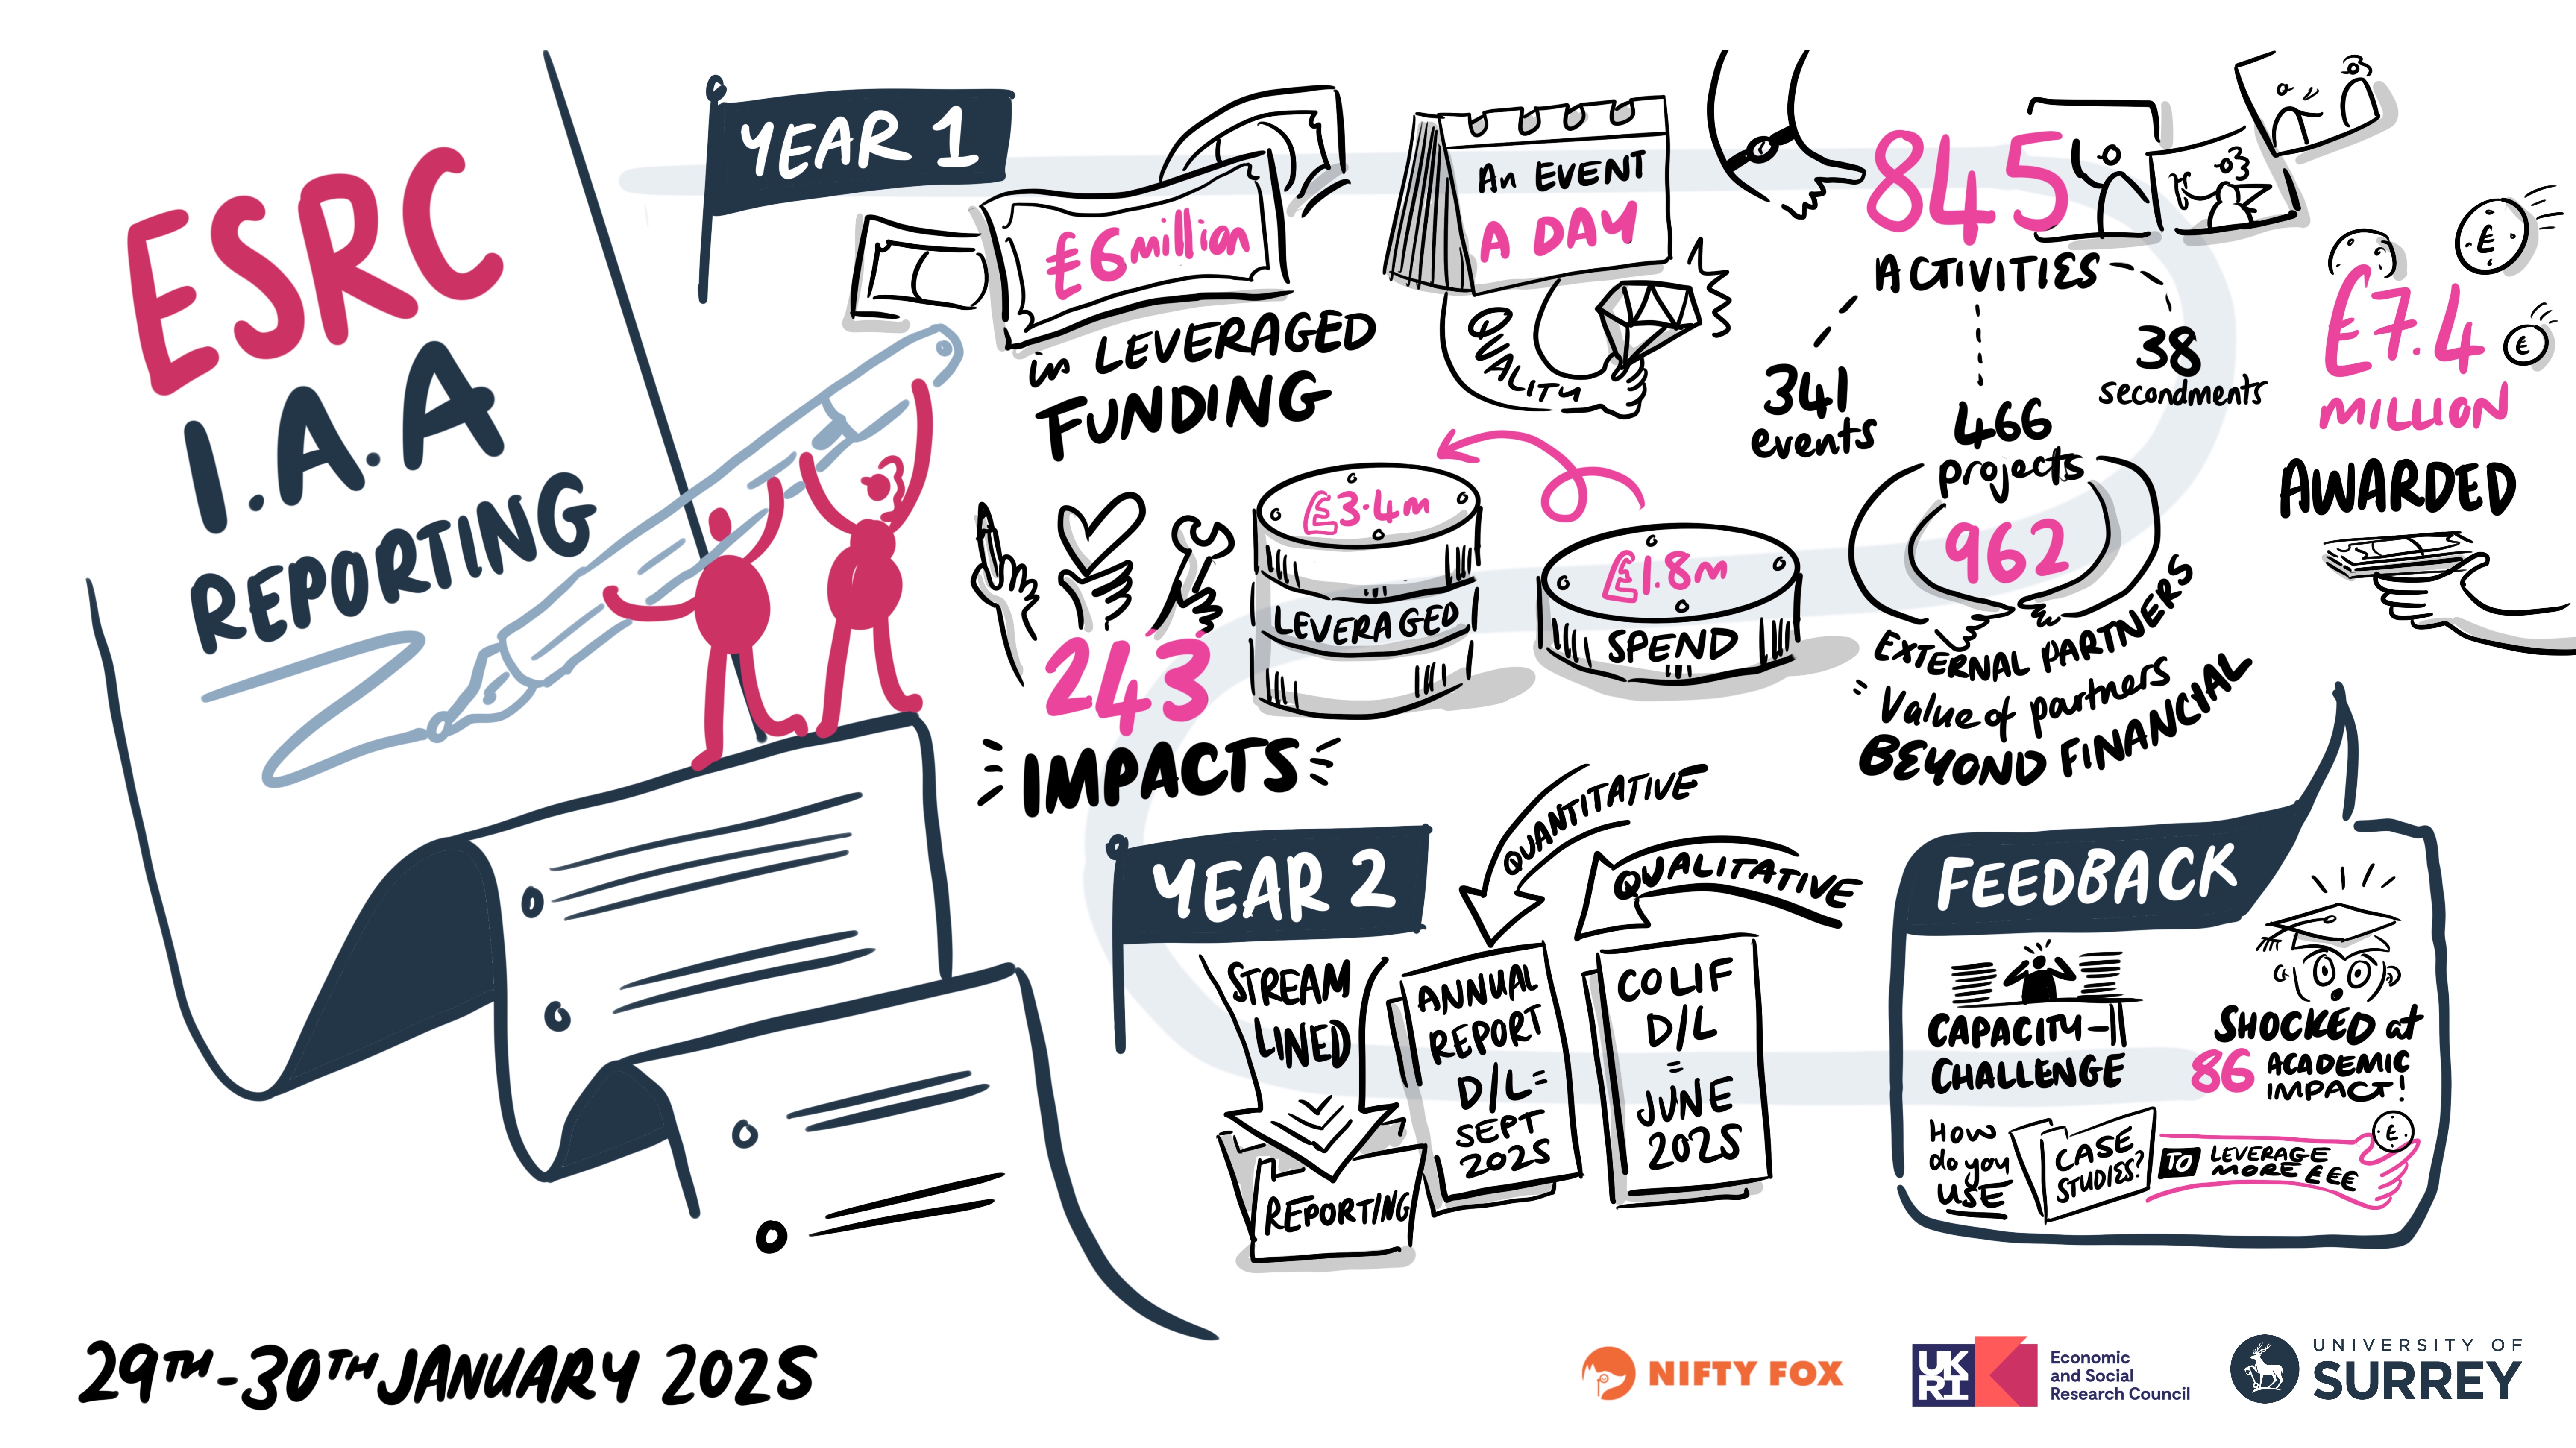 ESRC
I.A.A
REPORTING
YEAR 1
£6million
in LEVERAGED
FUNDING
An EVENT
A DAY
QUALITY
845
ACTIVITIES
341
events
466
projects
38
secondments
£7.4
MILLION
AWARDED
962
EXTERNAL PARTNERS
= Value of partners
BEYOND FINANCIAL
£1.8m
SPEND
£3.4m
LEVERAGED
243
IMPACTS
YEAR 2
STREAM
LINED
REPORTING
QUANTITATIVE
ANNUAL
REPORT
D/L=
SEPT
2025
QUALITATIVE
COLIF
D/L
=
JUNE
2025
FEEDBACK
CAPACITY
CHALLENGE
SHOCKED at
86 ACADEMIC
IMPACT!
HOW
do you
USE
CASE
STUDIES?
TO
LEVERAGE
MORE £££
£
£
£
29TH-30TH JANUARY 2025
NIFTY FOX
UK
RI
Economic
and Social
Research Council
UNIVERSITY OF
SURREY